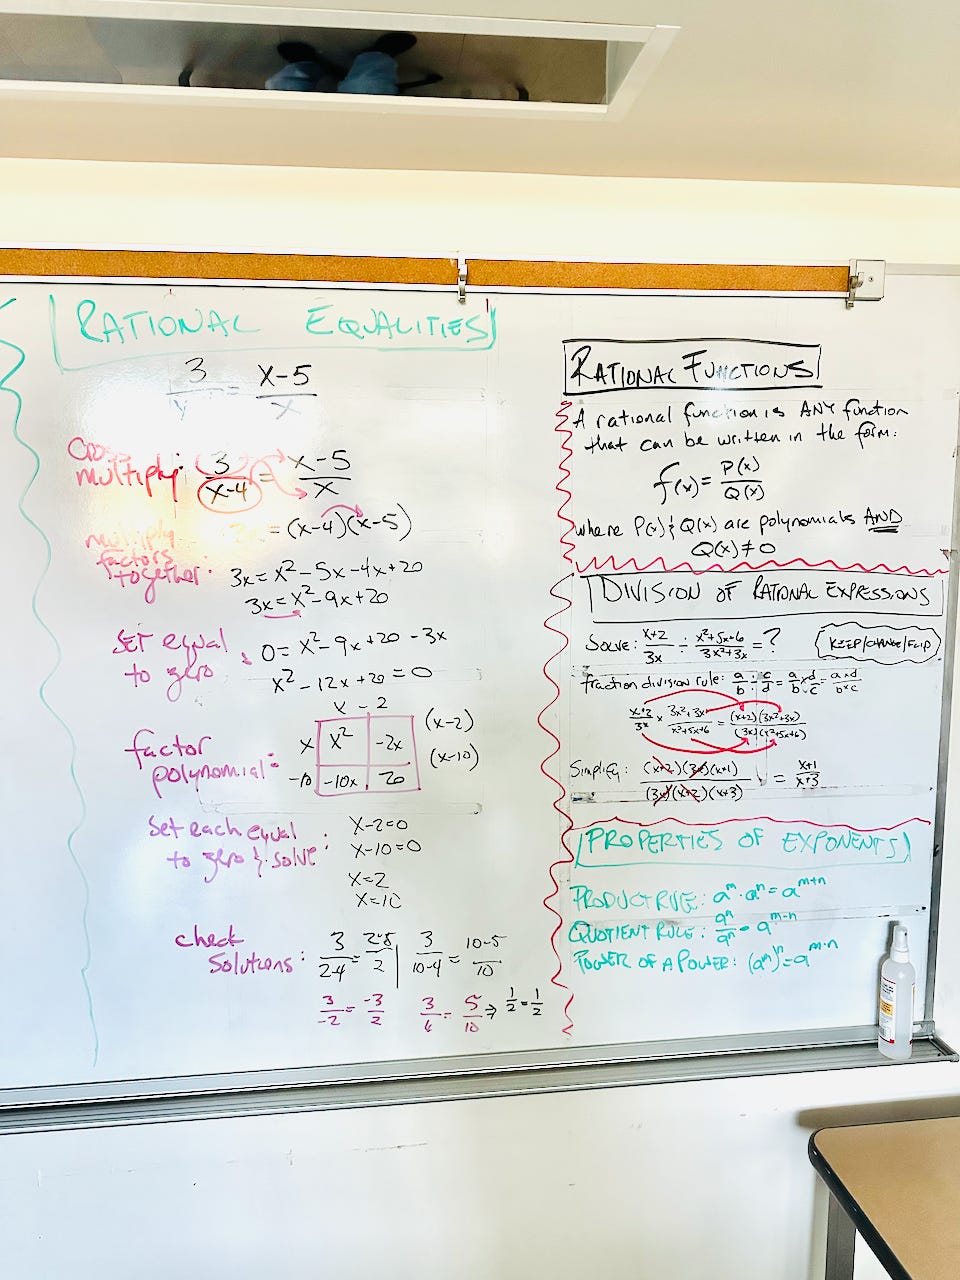 RATIONAL EQUALITIES
3/ = x-5/x
Cross multiply: 3/x-4 = x-5/x
multiply factors together: = (x-4)(x-5)
3x = x² - 5x - 4x + 20
3x = x² - 9x + 20
Set equal to zero: 0 = x² - 9x + 20 - 3x
x² - 12x + 20 = 0
factor polynomial:
x - 2
x x² -2x (x-2)
-10 -10x 20 (x-10)
Set each equal to zero & solve:
x-2=0
x-10=0
x=2
x=10
check solutions: 3/2-4 = 2-5/2 | 3/10-4 = 10-5/10
3/-2 = -3/2 3/6 = 5/10 ⇒ 1/2 = 1/2
RATIONAL FUNCTIONS
A rational function is ANY function
that can be written in the form:
f(x) = P(x)/Q(x)
where P(x) & Q(x) are polynomials AND
Q(x) ≠ 0
DIVISION OF RATIONAL EXPRESSIONS
SOLVE: x+2/3x ÷ x²+5x+6/3x²+3x = ?
KEEP/CHANGE/FLIP
fraction division rule: a/b ÷ c/d = a/b × d/c = a×d/b×c
x+2/3x × 3x²+3x/x²+5x+6 = (x+2)(3x²+3x)/(3x)(x²+5x+6)
Simplify: (x+2)(3x)(x+1)/(3x)(x+2)(x+3) = x+1/x+3
PROPERTIES OF EXPONENTS
PRODUCT RULE: aᵐ · aⁿ = aᵐ⁺ⁿ
QUOTIENT RULE: aᵐ/aⁿ = aᵐ⁻ⁿ
POWER OF A POWER: (aᵐ)ⁿ = aᵐ·ⁿ